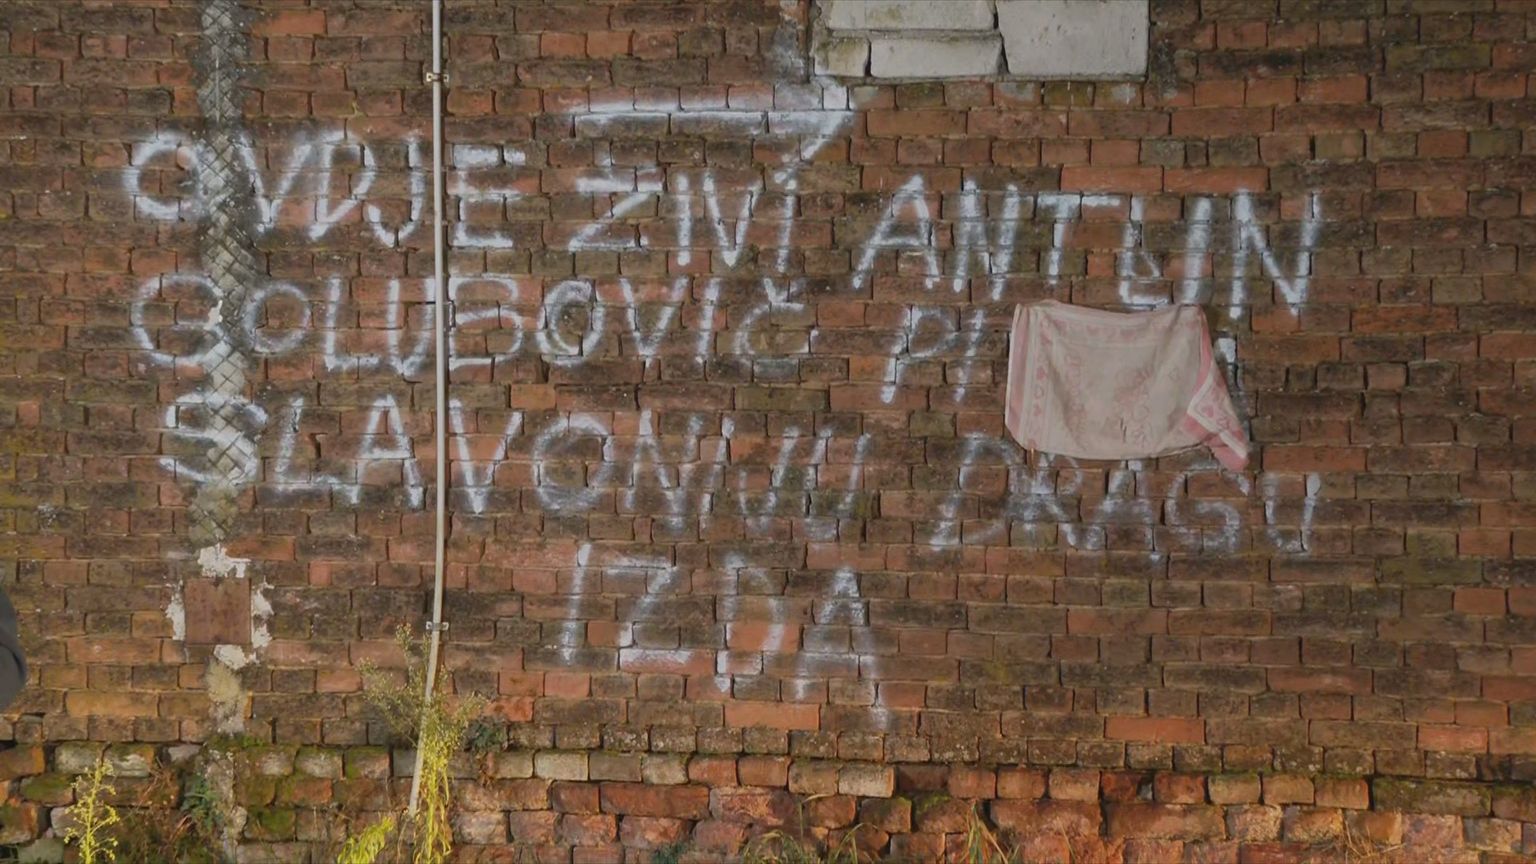 OVDJE ŽIVI ANTUN
GOLUBOVIČ
SLAVONIJU DRAGU
IZDA